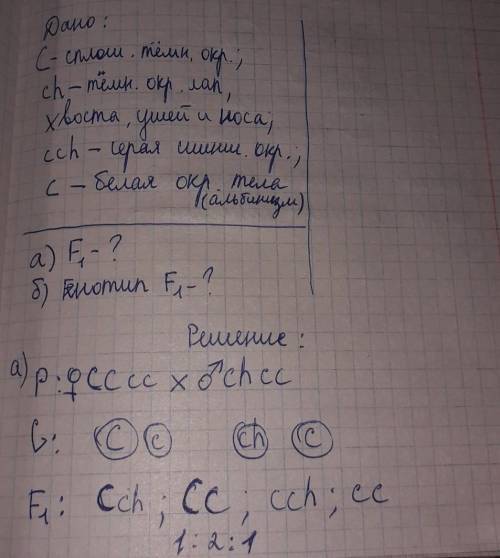 Дано:
C - сплош. тёмн. окр.;
ch - тёмн. окр. лап,
хвоста, ушей и носа;
cch - серая шинш. окр.;
c - белая окр. тела
(альбинизм)
а) F₁ - ?
б) Генотип F₁ - ?
Решение:
а) P: ♀CC cc x ♂ch cc
G: C c ch c
F₁: Cch; Cc; cch; cc
1:2:1